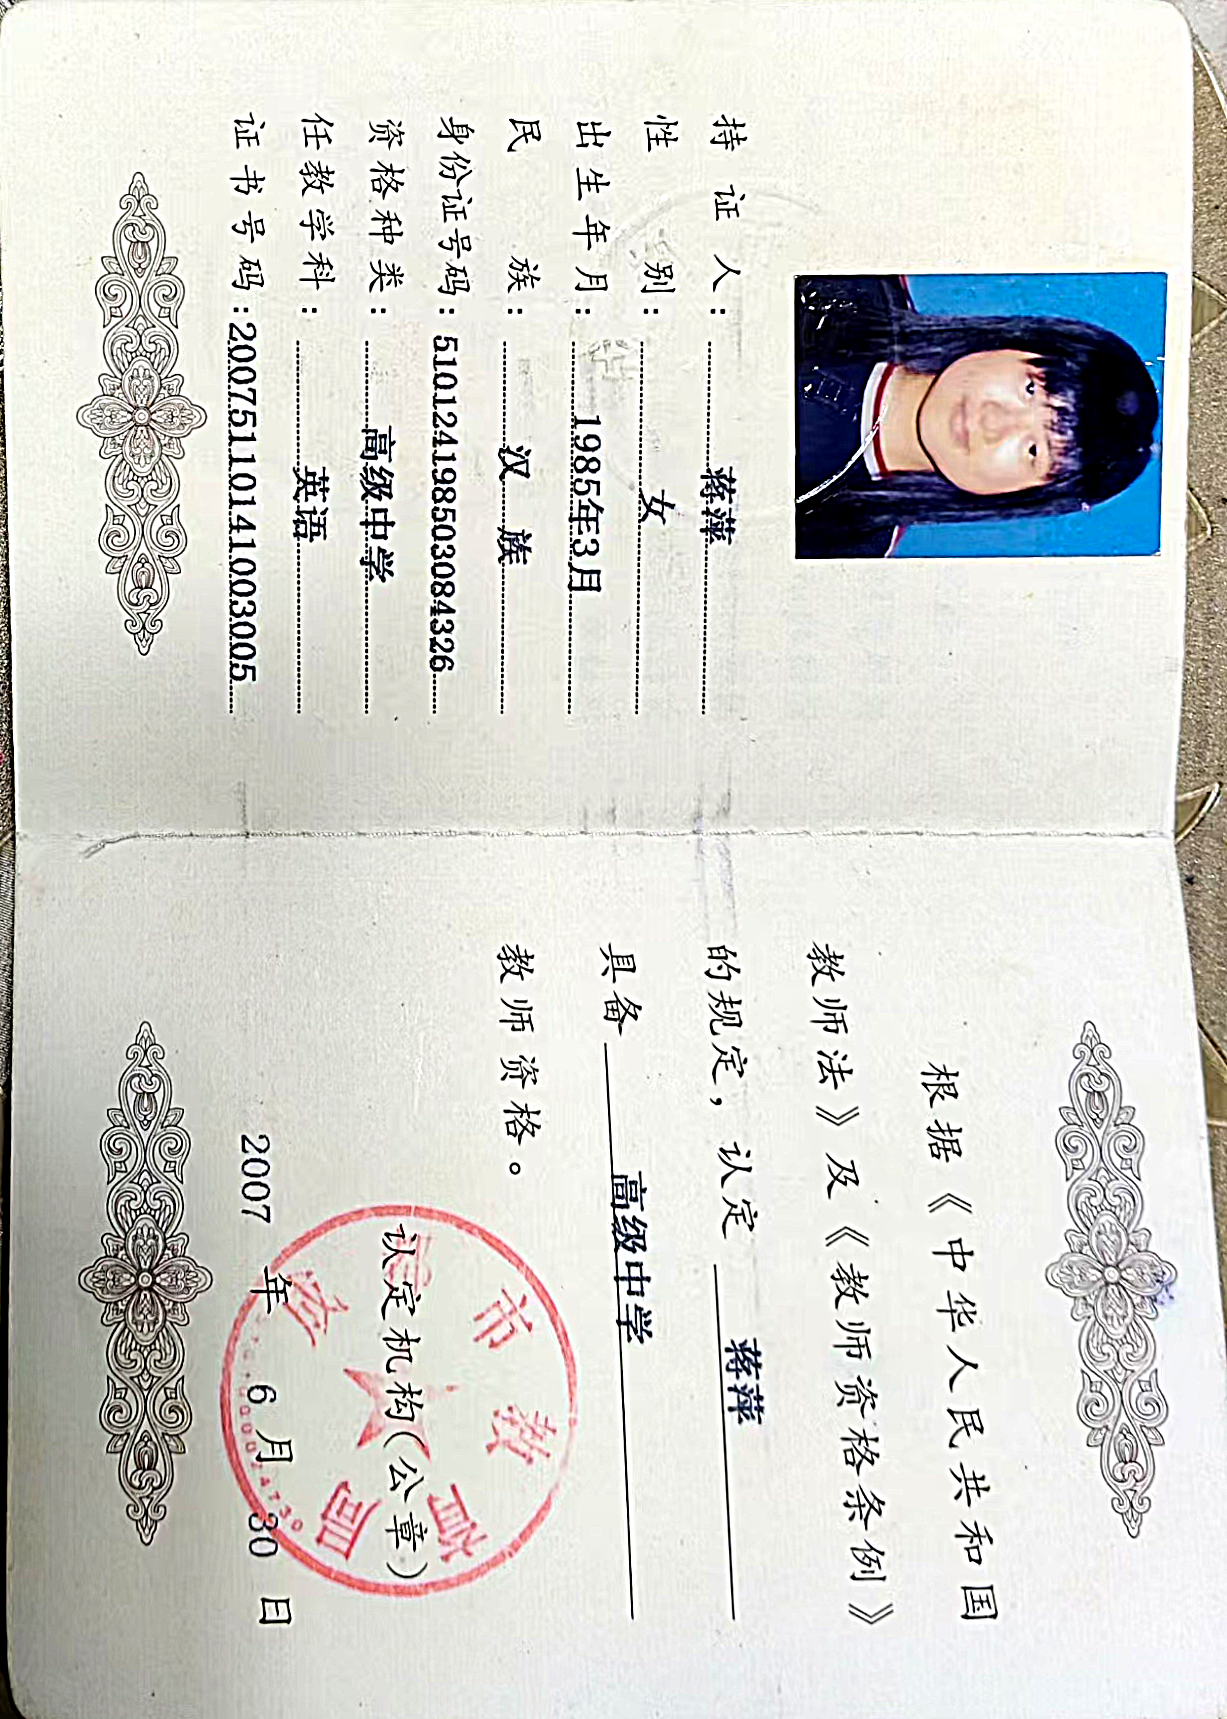 持证人：蒋萍
性别：女
出生年月：1985年3月
民族：汉族
身份证号码：510124198503084326
资格种类：高级中学
任教学科：英语
证书号码：20075110141003005
根据《中华人民共和国
教师法》及《教师资格条例》
的规定，认定 蒋萍
具备 高级中学
教师资格。
认定机构(公章)
市教育局
2007 年 6 月 30 日